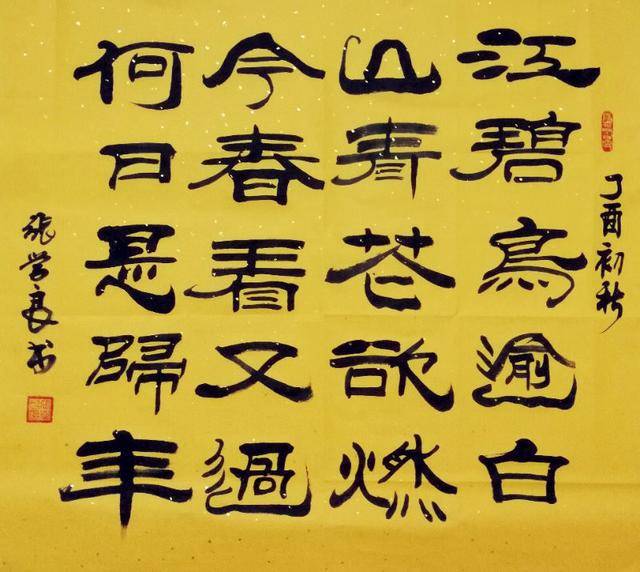 丁酉初秋
江碧鳥逾白
山青花欲燃
今春看又過
何日是歸年
张学良书